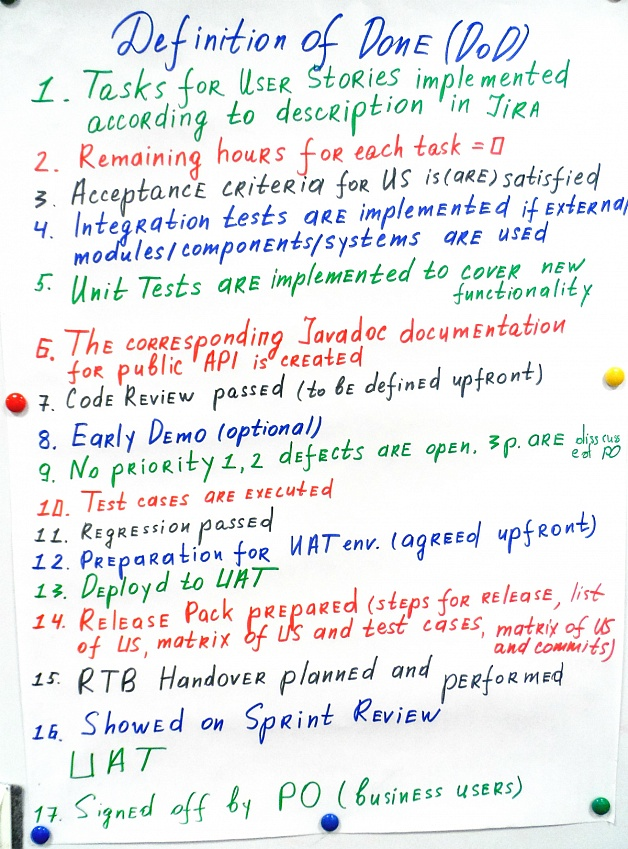 Definition of Done (DoD)
1. Tasks for User Stories implemented
according to description in JIRA
2. Remaining hours for each task = 0
3. Acceptance criteria for US is(are) satisfied
4. Integration tests are implemented if external
modules/components/systems are used
5. Unit Tests are implemented to cover new
functionality
6. The corresponding Javadoc documentation
for public API is created
7. Code Review passed (to be defined upfront)
8. Early Demo (optional)
9. No priority 1,2 defects are open. 3p. are disscus
ed PO
10. Test cases are executed
11. Regression passed
12. Preparation for UAT env. (agreed upfront)
13. Deployd to UAT
14. Release Pack prepared (steps for release, list
of US, matrix of US and test cases, matrix of US
and commits)
15. RTB Handover planned and performed
16. Showed on Sprint Review
UAT
17. Signed off by PO (business users)